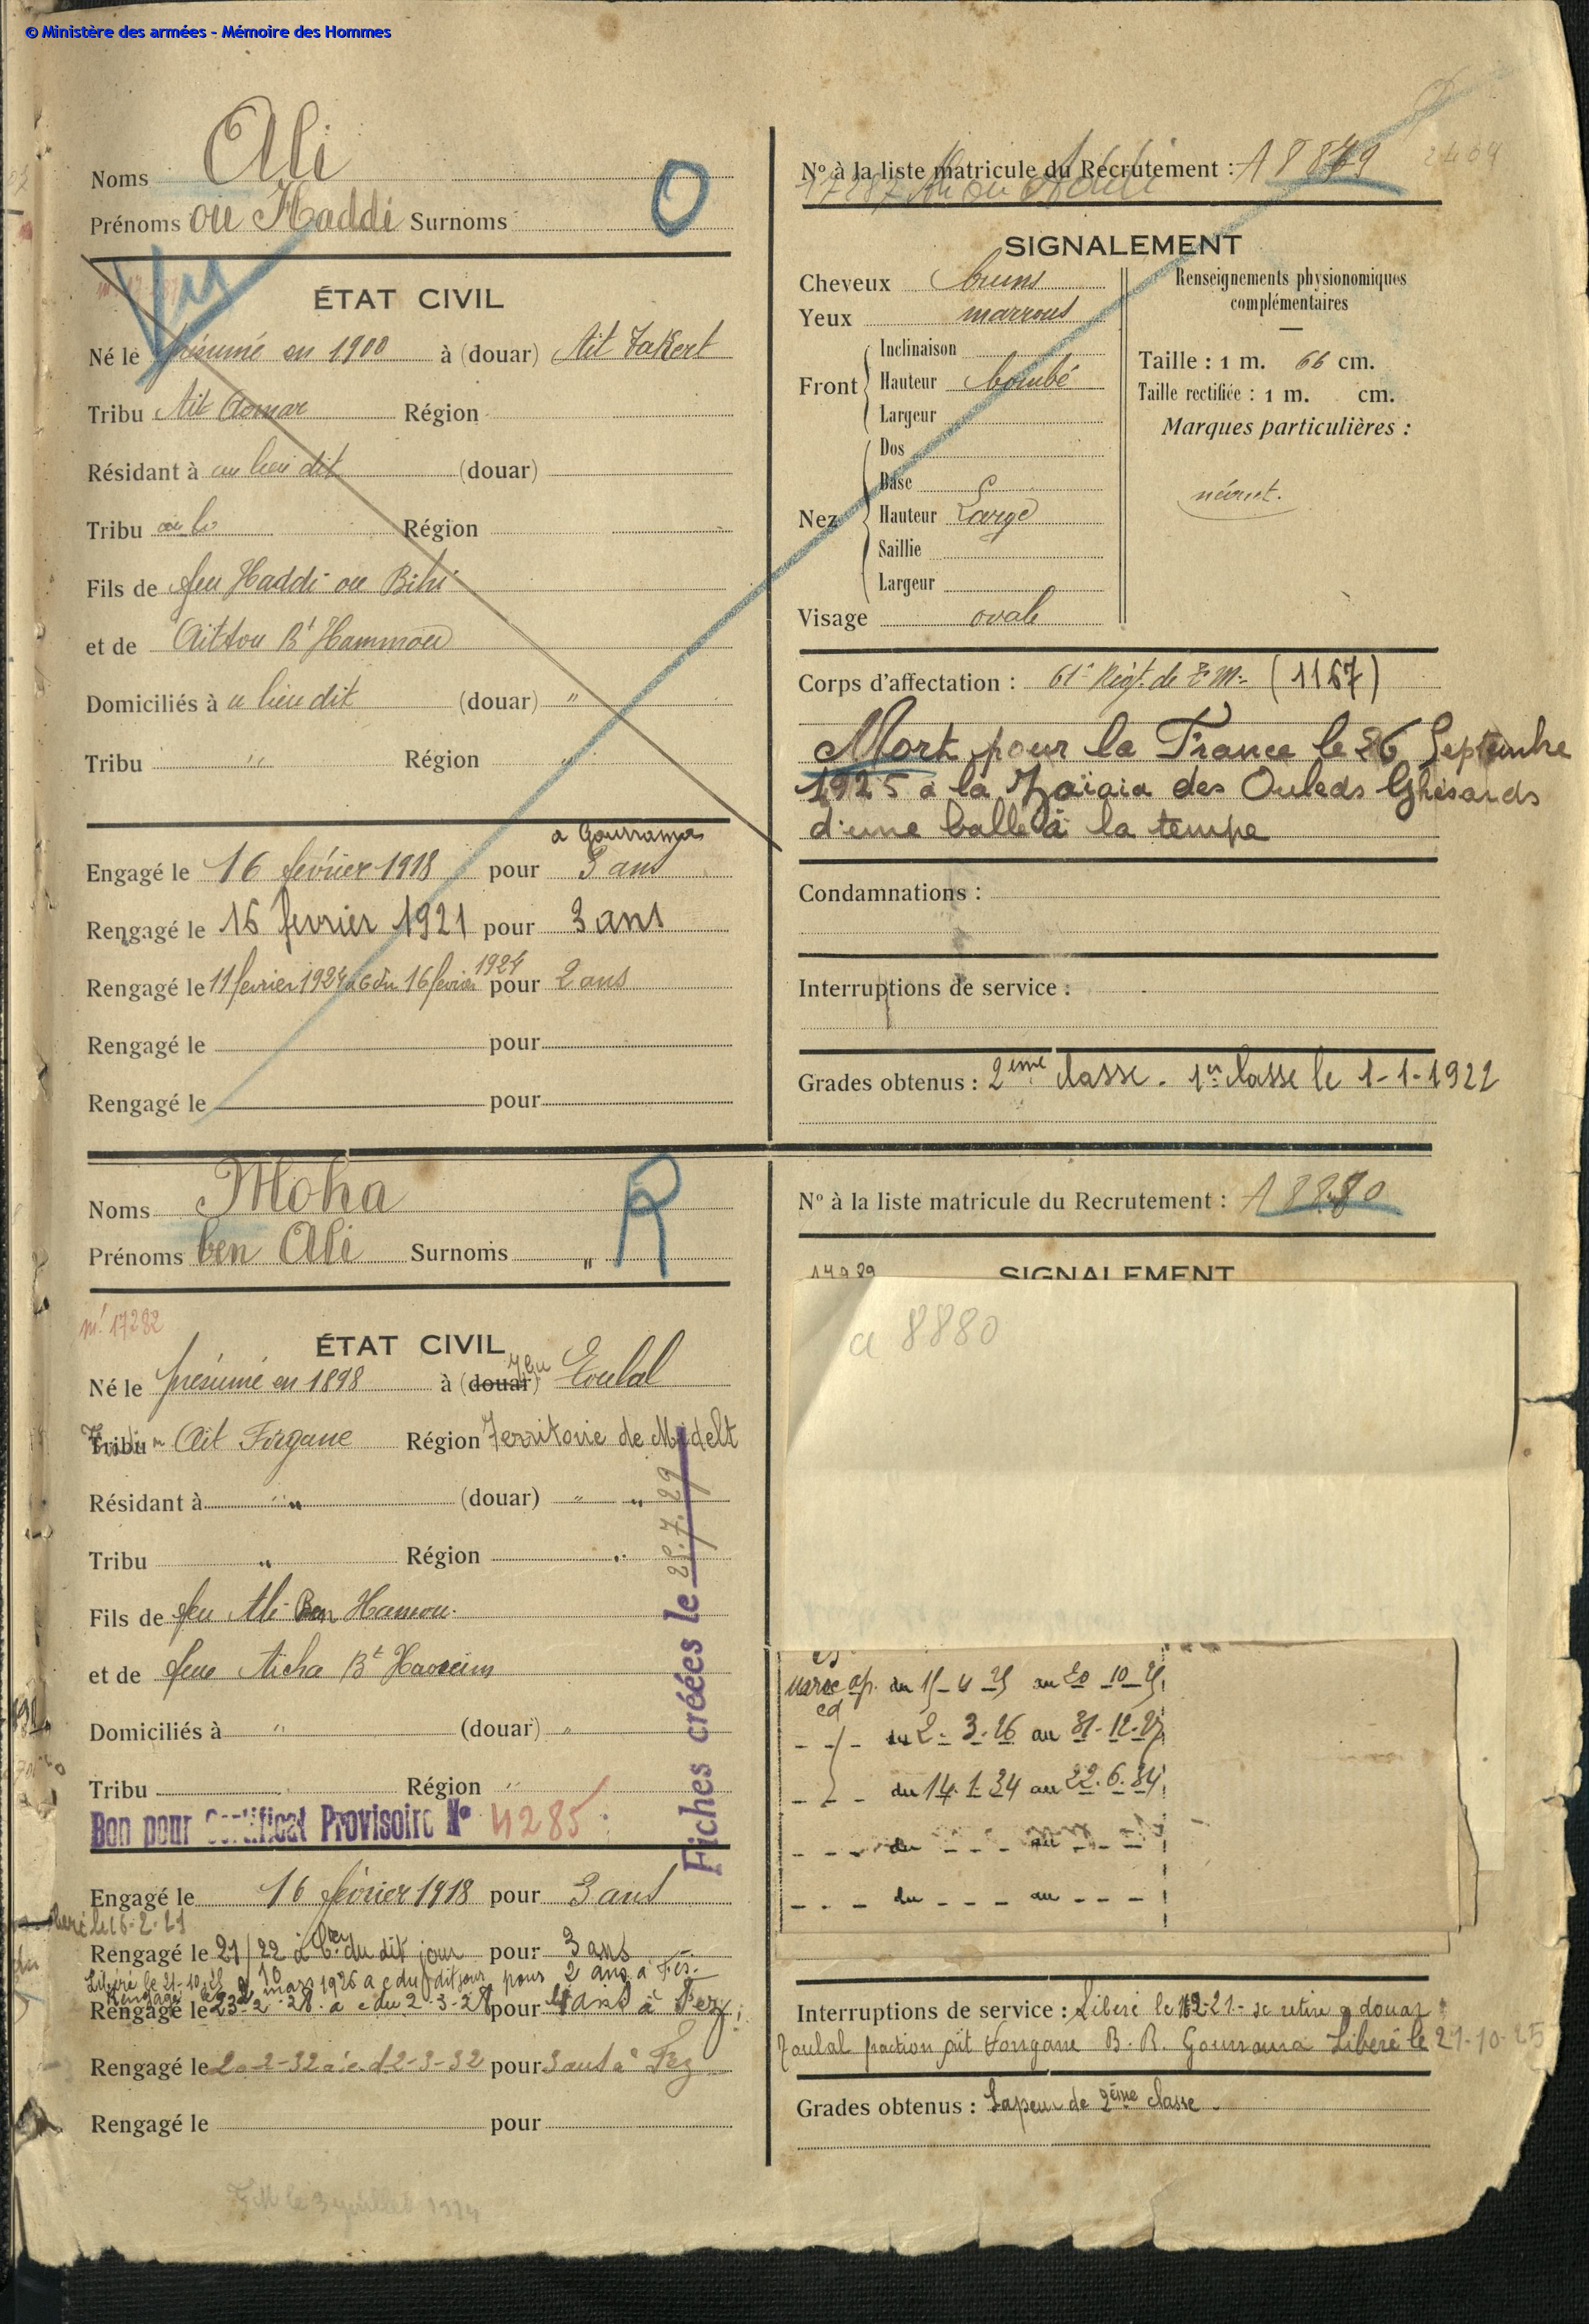 © Ministère des armées - Mémoire des Hommes
Noms Ali
Prénoms ou Haddi Surnoms
O
Vu
ÉTAT CIVIL
Né le présumé en 1900 à (douar) Ait
Tribu Ait Aomar Région
Résidant à au lieu dit (douar)
Tribu Région
Fils de feu Haddi ou Bihi
et de Aittou Bt Hammou
Domiciliés à u lieu dit (douar) "
Tribu " Région "
a Gourrama
Engagé le 16 février 1918 pour 3 ans
Rengagé le 16 fevrier 1921 pour 3 ans
Rengagé le 11 fevrier 1924 du 16 fevrier 1924 pour 2 ans
Rengagé le pour
Rengagé le pour
No à la liste matricule du Recrutement : 18879
SIGNALEMENT
Cheveux bruns
Yeux marrons
Front
Inclinaison
Hauteur bombé
Largeur
Nez
Dos
Base
Hauteur Large
Saillie
Largeur
Visage ovale
Renseignements physionomiques
complémentaires
Taille : 1 m. 66 cm.
Taille rectifiée : 1 m. cm.
Marques particulières :
néant.
Corps d'affectation : 61e Régt. de T. M. (1167)
Mort pour la France le 26 Septembre
1925 a la Zaïaia des Ouleds Ghesards
d'une balle à la tempe
Condamnations :
Interruptions de service :
Grades obtenus : 2ème classe. 1er classe le 1-1-1922
Noms Moha
Prénoms ben Ali Surnoms "
R
m' 17282
ÉTAT CIVIL
Né le présumé en 1898 à (douar) Toulal
Tribu Ait Firgane Région Territoire de Midelt
Résidant à " (douar) " "
Tribu " Région "
Fils de feu Ali Ben Hamou.
et de feue Aicha Bt
Domiciliés à " (douar) "
Tribu Région "
Bon pour Certificat Provisoire No 4285
Fiches créées le 25.7.29
Engagé le 16 février 1918 pour 3 ans
Rengagé le 21/22 du dit jour pour 3 ans
Libéré le 21-10-25
Rengagé le mars 1926 a c du dit jour pour 2 ans à Fes.
Rengagé le 23-2-28 a c du 2-3-28 pour 4 ans à Fez
Rengagé le 2-32 2-3-32 pour 3 ans à Fez
Rengagé le pour
le 3 juillet 1934
No à la liste matricule du Recrutement : 18880
14989 SIGNALEMENT
a 8880
Maroc op. du 15-4-25 au 20-10-25
du 2-3-26 au 31-12-27
du 14.1.34 au 22.6.34
du au
du au
Interruptions de service : Libéré le 16-2-21 - se retire a douar
Toulal fraction ait B. R. Gourrama Libéré le 21-10-25
Grades obtenus : Sapeur de 2ème classe.